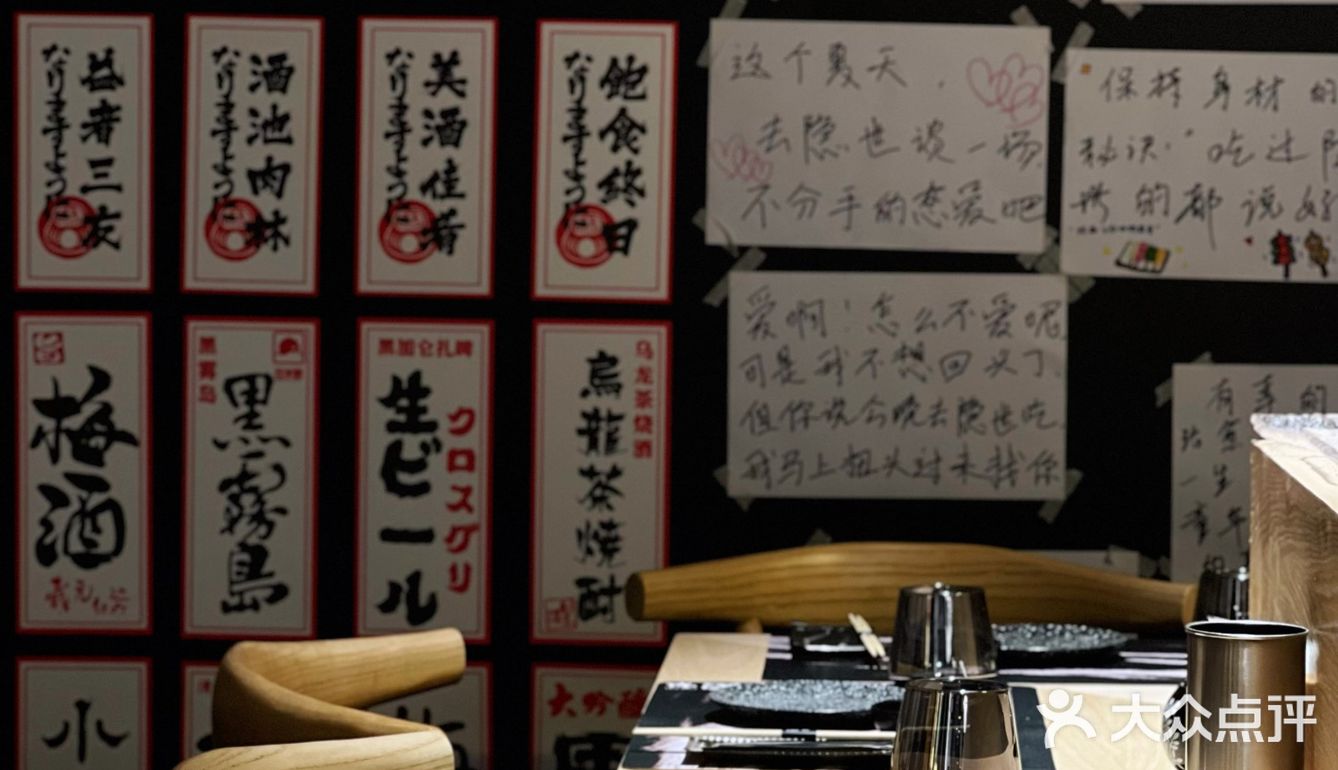 益者三友
なりますように
酒池肉林
なりますように
美酒佳肴
なりますように
飽食终日
なりますように
梅酒
黑雾岛
黒霧島
黑加仑扎啤
生ビール
クロスグリ
乌龙茶烧酒
烏龍茶焼酎
小
大吟醸
这个夏天，
去隐也谈一场
不分手的恋爱吧
保持身材的
秘诀:"吃过隐
的都说好
爱啊!怎么不爱呢
可是我不想回头了、
但你说今晚去隐也吃、
我马上扭头过来找你
有
一生
大众点评